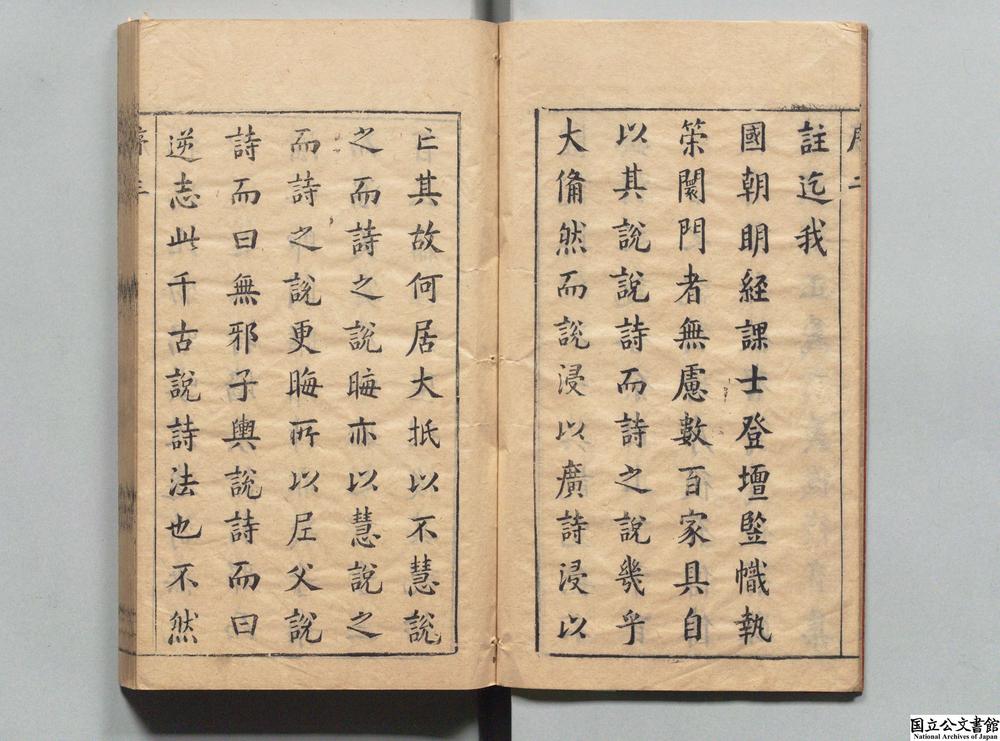 序二
註迄我
國朝明經課士登壇竪幟執
策闤門者無慮數百家具自
以其說說詩而詩之說幾乎
大備然而說浸以廣詩浸以
亡其故何居大抵以不慧說
之而詩之說晦亦以慧說之
而詩之說更晦所以尼父說
詩而曰無邪子輿說詩而曰
逆志此千古說詩法也不然
序三
国立公文書館
National Archives of Japan